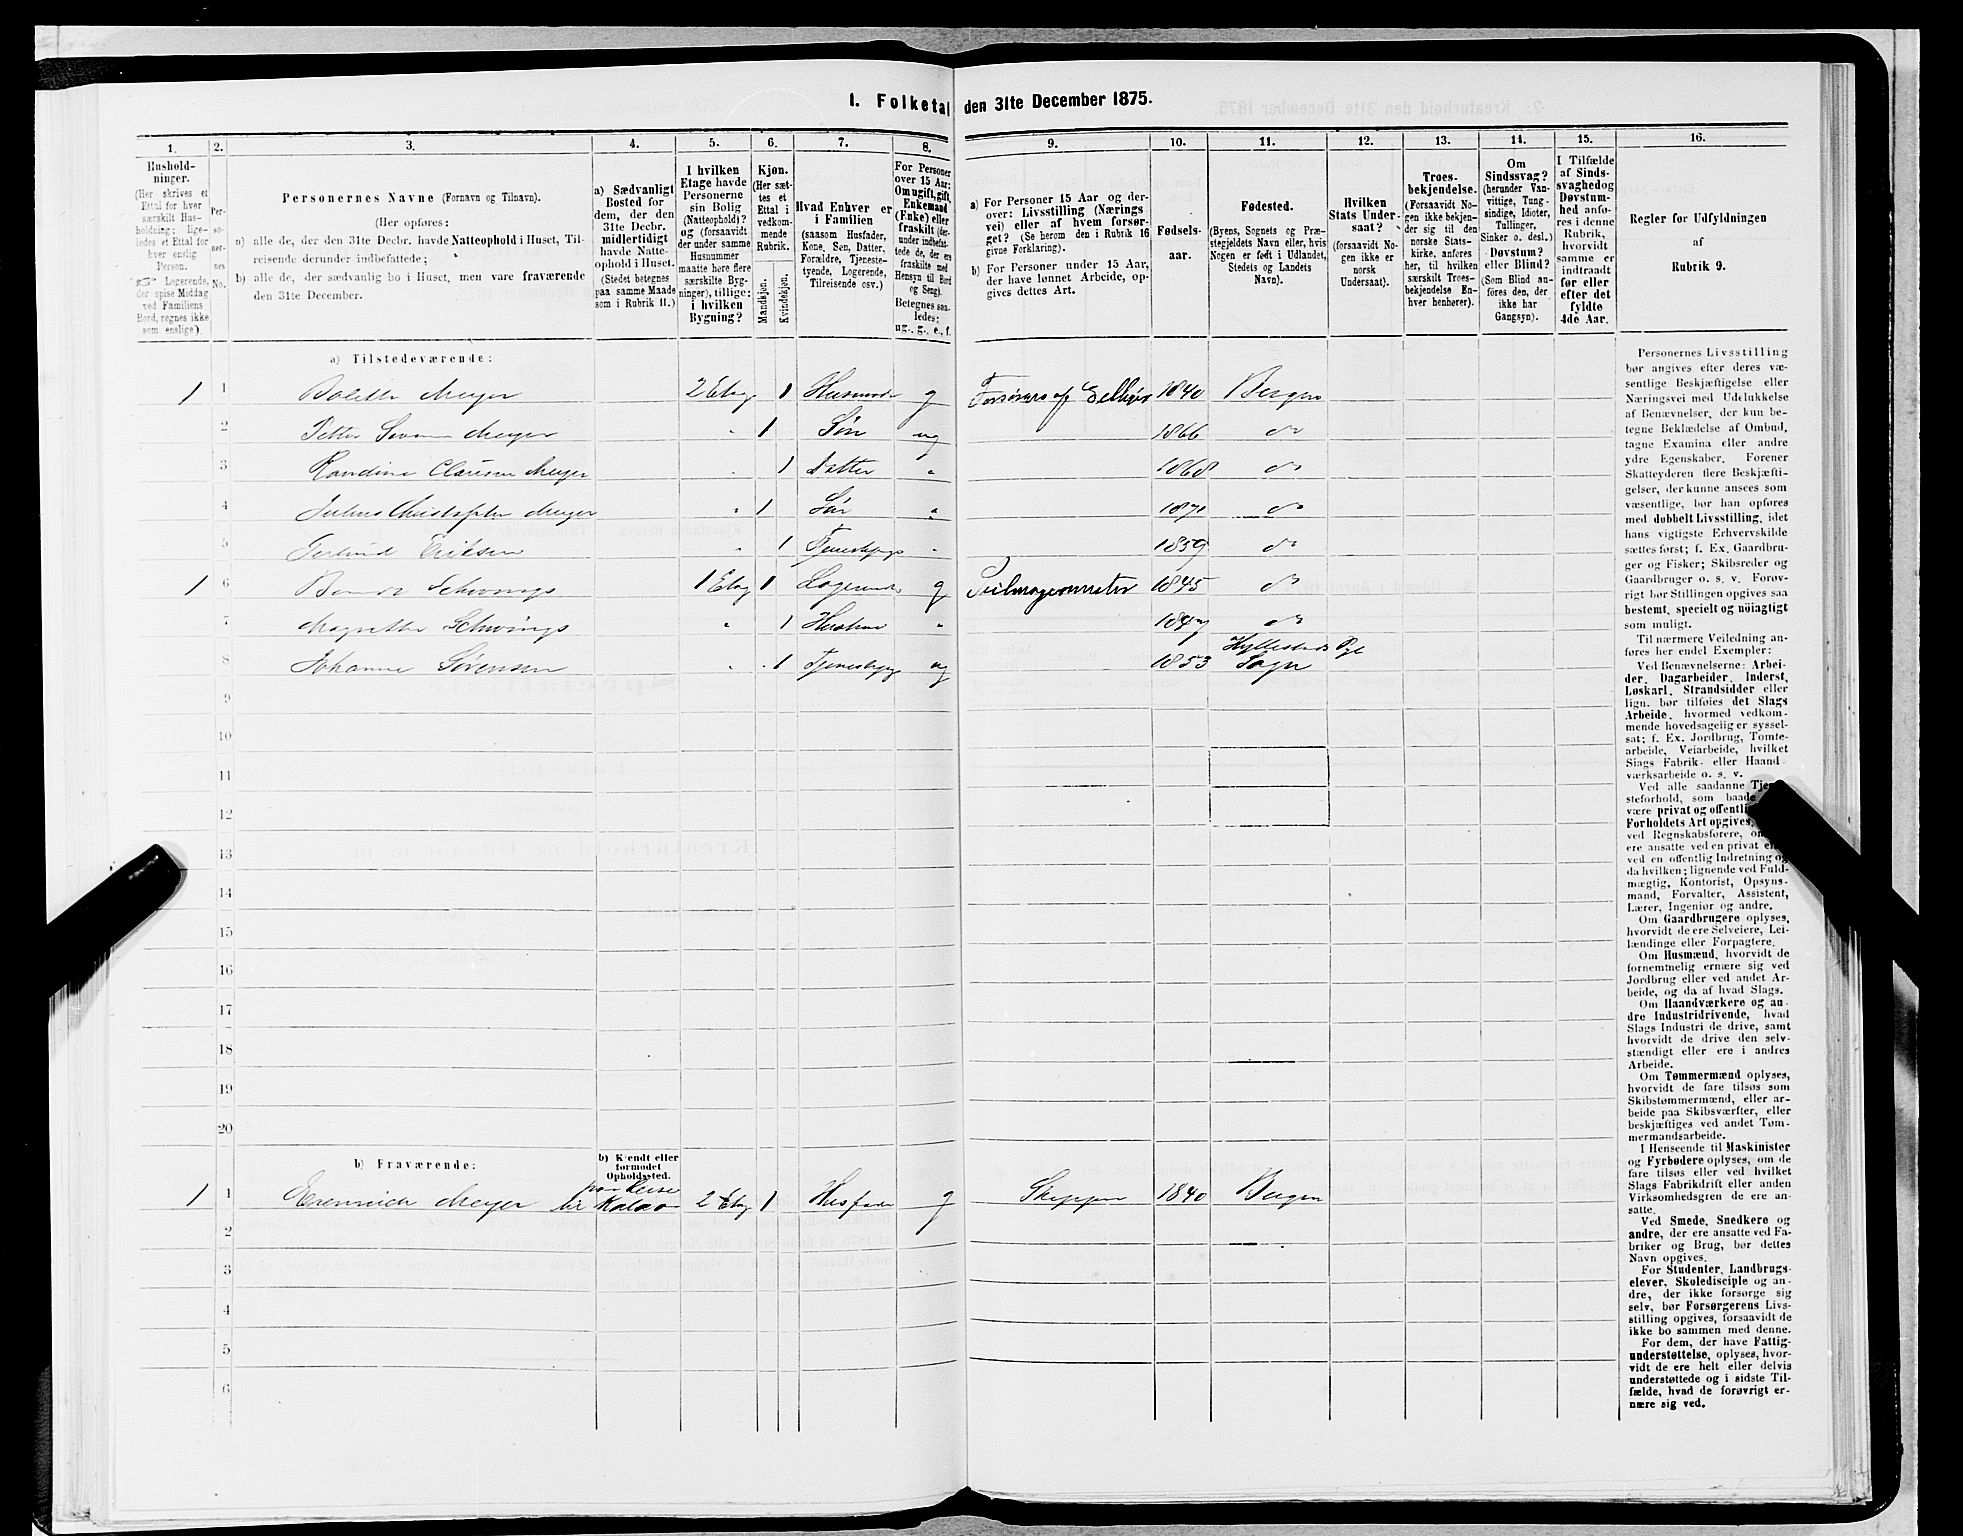 1. Folketal den 31te December 1875.
1. 2. 3. 4. 5. 6. 7. 8. 9. 10. 11. 12. 13. 14. 15. 16.
Hushold-
ninger.
(Her skrives et
Ettal for hver
særskilt Hus-
holdning; lige-
ledes et Ettal for
hver enslig
Person.
Logerende,
der spise Middag
ved Familiens
Bord, regnes ikke
som enslige).
Per-
so-
ner-
nes
No.
Personernes Navne (Fornavn og Tilnavn).
(Her opføres:
a) alle de, der den 31te Decbr. havde Natteophold i Huset, Til-
reisende derunder indbefattede;
b) alle de, der sædvanlig bo i Huset, men vare fraværende
den 31te December.
a) Sædvanligt
Bosted for
dem, der den
31te Decbr.
midlertidigt
havde Natte-
ophold i Huset.
(Stedet betegnes
paa samme Maade
som i Rubrik 11.)
I hvilken
Etage havde
Personerne
sin Bolig
(Natteophold)?
og (forsaavidt
der under samme
Husnummer
maatte høre flere
særskilte Byg-
ninger), tillige:
i hvilken
Bygning?
Kjøn.
(Her sæt-
tes et
Ettal i
vedkom-
mende
Rubrik.
Mandkjøn.
Kvindekjøn.
Hvad Enhver er
i Familien
(saasom Husfader,
Kone, Søn, Datter,
Forældre, Tjeneste-
tyende, Logerende,
Tilreisende osv.)
For Personer
over 15 Aar:
Om ugift, gift,
Enkemand
(Enke) eller
fraskilt (der-
under indbefat-
tede de, der ere
fraskilte med
Hensyn til Bord
og Seng).
Betegnes saa-
ledes:
ug., g., e., f.
a) For Personer 15 Aar og der-
over: Livsstilling (Nærings
vei) eller af hvem forsør-
get? (Se herom den i Rubrik 16
givne Forklaring).
b) For Personer under 15 Aar,
der have lønnet Arbeide, op-
gives dettes Art.
Fødsels-
aar.
Fødested.
(Byens, Sognets og Præ-
stegjeldets Navn eller, hvis
Nogen er født i Udlandet,
Stedets og Landets
Navn).
Hvilken
Stats Under-
saat?
(forsaavidt No-
gen ikke er
norsk
Undersaat).
Troes-
bekjendelse.
(Forsaavidt No-
gen ikke bekjen-
der sig til den
norske Stats-
kirke, anføres
her, til hvilken
særskilt Troes-
bekjendelse En-
hver henhører).
Om
Sindssvag?
(herunder Van-
vittige, Tung-
sindige, Idioter,
Tullinger,
Sinker o. desl.)
Døvstum?
eller Blind?
(Som Blind an-
føres den, der
ikke har
Gangsyn).
I Tilfælde
af Sinds-
svaghed og
Døvstum-
hed anfø-
res i denne
Rubrik,
hvorvidt
samme er
indtraadt
før eller
efter det
fyldte
4de Aar.
Regler for Udfyldningen
af
Rubrik 9.
a) Tilstedeværende:
1 1 Bolette Meyer 2 Etag 1 Husmoder g 1840 Bergen
2 Meyer 1 Søn ug 1866 do
3 Meyer 1 Datter 1868 do
4 Julius Christopher Meyer 1 Søn do
5 Eriksen 1 1859 do
1 6 1 Etag 1 Logerende g 1845 do
7 1 do
8 Johanne Sørensen 1 ug 1853 Sogn
9
10
11
12
13
14
15
16
17
18
19
20
b) Fraværende:
b) Kjendt eller
formodet
Opholdssted.
paa Reise
1 1 Meyer 2 Etag 1 Husfader g Skipper 1840 Bergen
2
3
4
5
6
Personernes Livsstilling
bør angives efter deres væ-
sentlige Beskjæftigelse eller
Næringsvei med Udelukkelse
af Benævnelser, der kun be-
tegne Beklædelse af Ombud,
tagne Examina eller andre
ydre Egenskaber. Forener
Skatteyderen flere Beskjæfti-
gelser, der kunne ansees som
væsentlige, bør han opføres
med dobbelt Livsstilling, idet
hans vigtigste Erhvervskilde
sættes først; f. Ex. Gaardbru-
ger og Fisker; Skibsreder og
Gaardbruger o. s. v. Forøv-
rigt bør Stillingen opgives saa
bestemt, specielt og nöiagtigt
som muligt.
Til nærmere Veiledning an-
føres her endel Exempler:
Ved Benævnelserne: Arbei-
der, Dagarbeider, Inderst,
Løskarl, Strandsidder eller
lign. bør tilføies det Slags
Arbeide, hvormed vedkom-
mende hovedsagelig er syssel-
sat; f. Ex. Jordbrug, Tomte-
arbeide, Veiarbeide, hvilket
Slags Fabrik- eller Haand-
værksarbeide o. s. v.
Ved alle saadanne
steforhold, som
være privat og
Forholdets Art opgives,
ved Regnskabsførere,
ere ansatte ved en privat
ved en offentlig Indretning og
da hvilken; lignende ved Fuld-
mægtig, Kontorist, Opsyns-
mand, Forvalter, Assistent,
Lærer, Ingeniør og andre.
Om Gaardbrugere oplyses,
hvorvidt de ere Selveiere, Lei-
lændinge eller Forpagtere.
Om Husmænd, hvorvidt de
fornemmelig ernære sig ved
Jordbrug eller ved andet Ar-
beide, og da af hvad Slags.
Om Haandværkere og an-
dre Industridrivende, hvad
Slags Industri de drive, samt
hvorvidt de drive den selv-
stændigt eller ere i andres
Arbeide.
Om Tømmermænd oplyses,
hvorvidt de fare tilsøs som
Skibstømmermænd, eller ar-
beide paa Skibsværfter, eller
beskjæftiges ved andet Tøm-
mermandsarbeide.
I Henseende til Maskinister
og Fyrbødere oplyses, om de
fare tilsøs eller ved hvilket
Slags Fabrikdrift eller anden
Virksomhedsgren de ere an-
satte.
Ved Smede, Snedkere og
andre, der ere ansatte ved Fa-
briker og Brug, bør dettes
Navn opgives.
For Studenter, Landbrugs-
elever, Skoledisciple og an-
dre, der ikke forsørge sig
selv, bør Forsørgerens Livs-
stilling opgives, forsaavidt de
ikke bo sammen med denne.
For dem, der have Fattig-
understøttelse, oplyses, hvor-
vidt de ere helt eller delvis
understøttede og i sidste Til-
fælde, hvad de forøvrigt er-
nære sig ved.